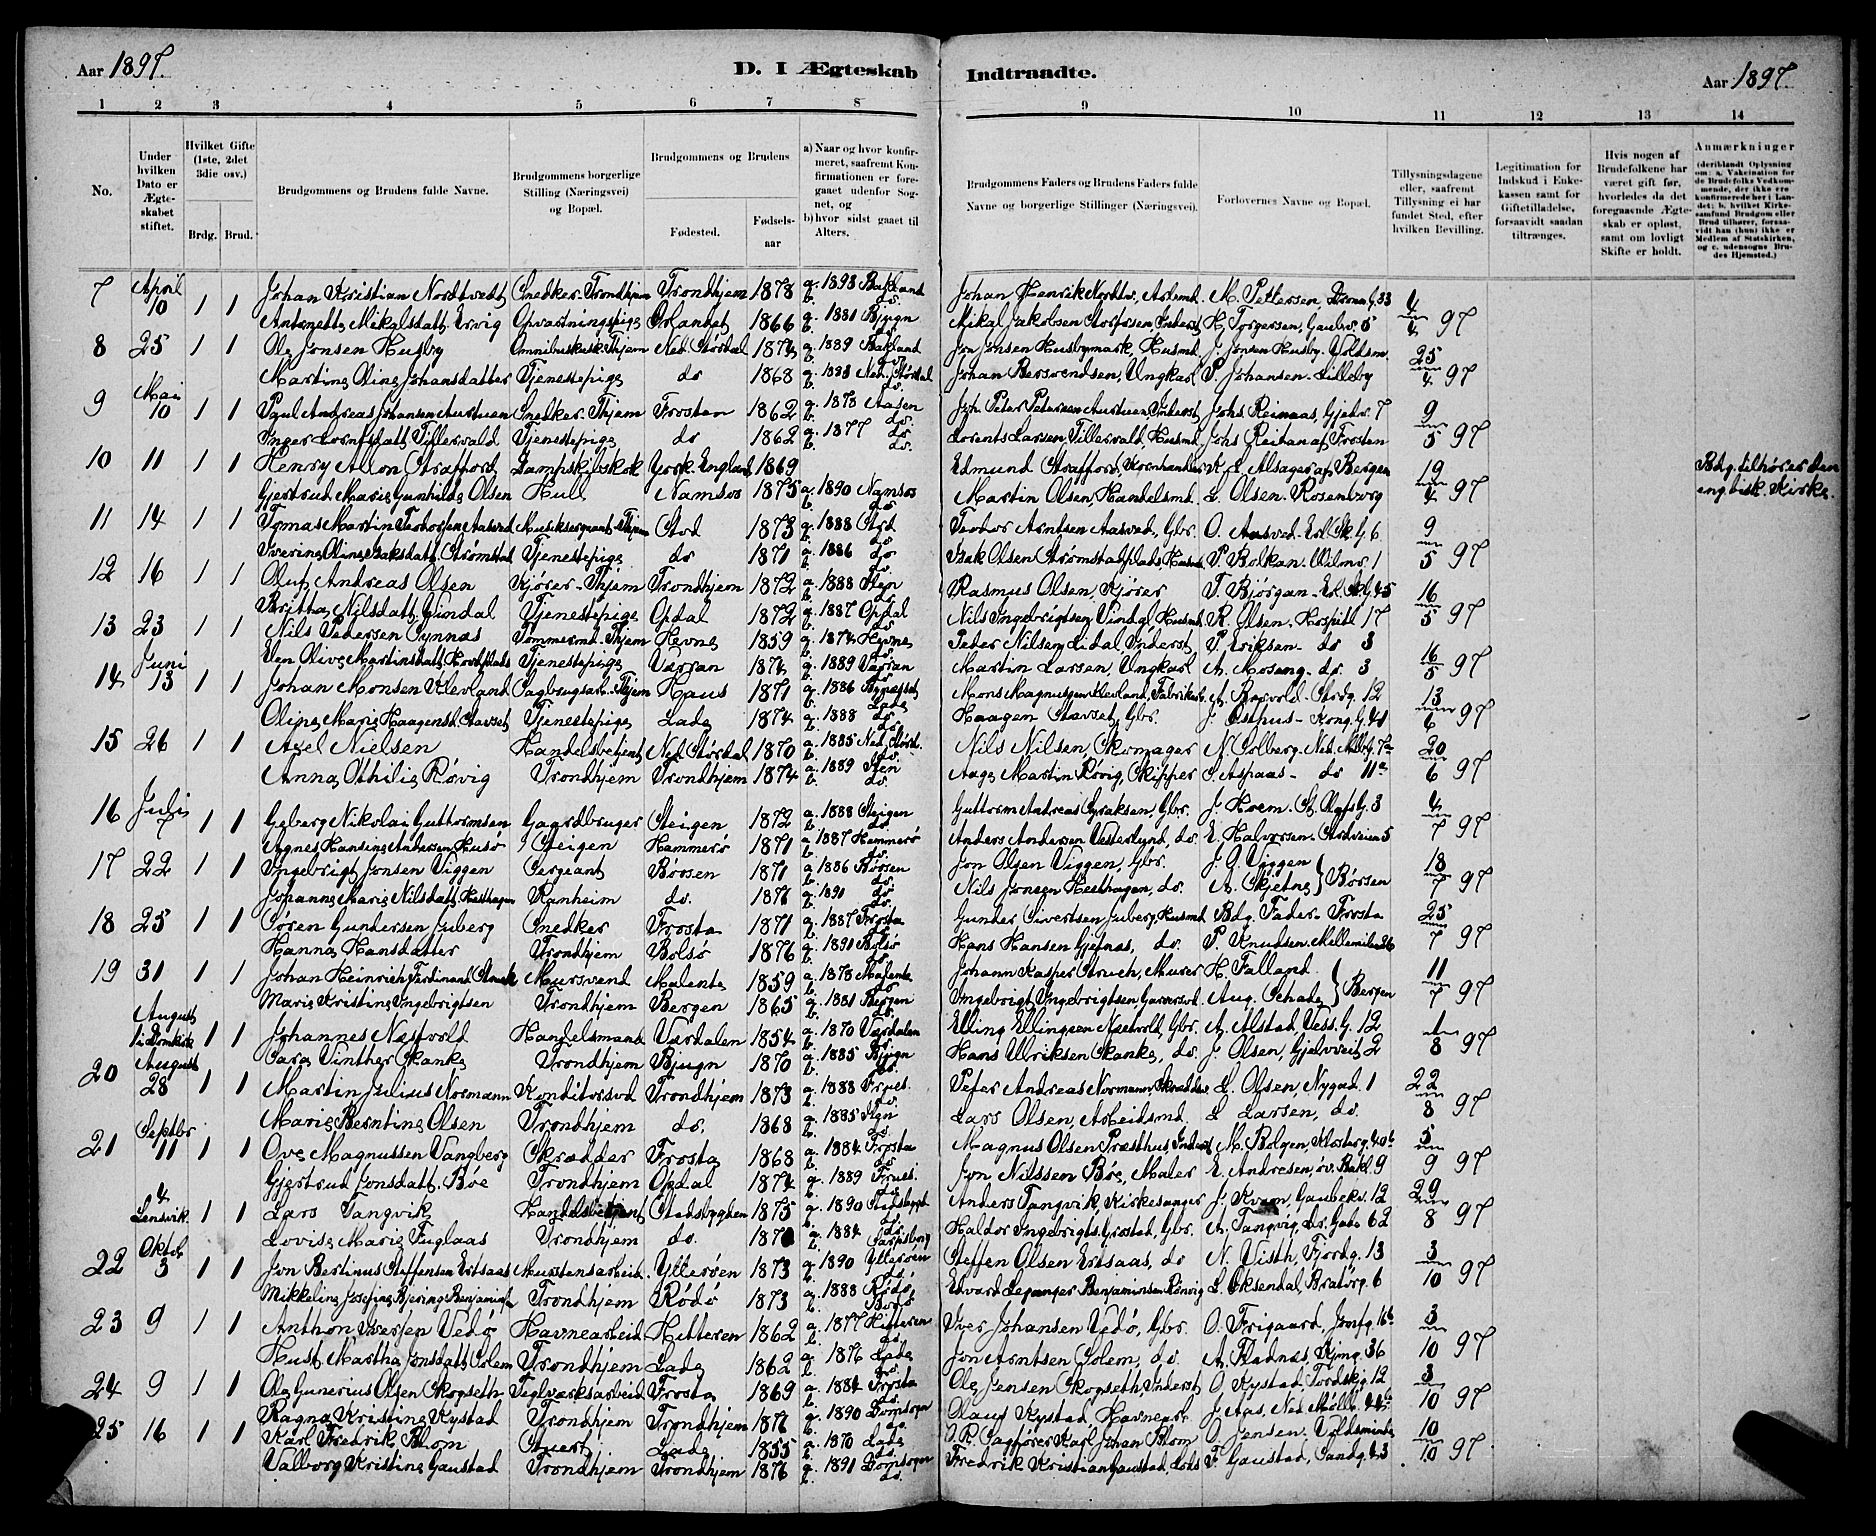 Aar 1897.
D. I Ægteskab
Indtraadte.
Aar 1897.
1 2 3 4 5 6 7 8
9 10 11 12 13 14
No.
Under hvilken Dato er Ægteskabet stiftet.
Hvilket Gifte (1ste, 2det 3die osv.)
Brdg. Brud.
Brudgommens og Brudens fulde Navne.
Brudgommens borgerlige Stilling (Næringsvei) og Bopæl.
Brudgommens og Brudens
Fødested.
Fødselsaar
a) Naar og hvor konfirmeret, saafremt Konfirmationen er foregaaet udenfor Sognet, og
b) hvor sidst gaaet til Alters.
Brudgommens Faders og Brudens Faders fulde Navne og borgerlige Stillinger (Næringsvei).
Forlovernes Navne og Bopæl.
Tillysningsdagene eller, saafremt Tillysning ei har fundet Sted, efter hvilken Bevilling.
Legitimation for Indskud i Enkekassen samt for Giftetilladelse, forsaavidt saadan tiltrænges.
Hvis nogen af Brudefolkene har været gift før, hvorledes da det foregaaende Ægteskab er opløst, samt om lovligt Skifte er holdt.
Anmærkninger
(deriblandt Oplysning om: a. Vakcination for de Brudefolks Vedkommende, der ikke ere konfirmerede her i Landet; b. hvilket Kirkesamfund Brudgom eller Brud tilhører, forsaavidt han (hun) ikke er Medlem af Statskirken, og c. udensogns Brudes Hjemsted.)
7 April 10 1 1 Johan Kristian Nordtvedt Snedker. Trondhjem Trondhjem 1873 a. 1893 Bakland b. do. Johan Henrik Nordtv., Arbmd. M. Pettersen, G. 33 4/4 97
Antonette Mikalsdatt. Ervig Opvartningspige Ørlandet 1866 a. 1881 Bjugn Mikal Jakobsen Storfosen, Inderst H. Torgersen, Gaubv. 5
8 25 1 1 Ole Jonsen Husby Omnibuskusk Thjem Ned. Størdal 1874 a. 1889 Bakland Jon Jonsen Husbymark, Husmd. J. Jonsen Husby. Voldsm. 25/4 97
Martine Oline Johansdatter Tjenestepige do 1868 a. 1883 Ned. Størdal b. do. Johan Berswendsen, Ungkarl P. Johansen. Lilleby
9 Mai 10 1 1 Paul Andreas Johansen Austuen Snedker. Thjem Frosten 1862 a. 1878 Aasen b. do. Joh. Peter Petersen Austuen, Inderst Johs. Reinaas, Gjedv. 7 9/5 97
Inger Lorntsdatt. Tillervald Tjenestepige do 1862 a. 1877 do b. do. Lorents Larsen, Tillervald, Husmd. Johs Reitan af Frosten
10 11 1 1 Henry Allon Strafford Dampskibskok York. England 1869 Edmund Strafford, Kornhandler K. L. Alsager af Bergen 19/4 97 Bdg. tilhører den eng. bisk. Kirke.
Gjertrud Marie Gunhilde Olsen Hull Namsos 1875 a. 1890 Namsos b. do Martin Olsen, Handelsmd. L. Olsen. Rosenborg
11 14 1 1 Tomas Martin Teodorsen Aasved Musiksergeant Thjem Stod 1873 a. 1888 Stod b. do Teodor Arntsen Aasved, Gbr. O. Aasved. Erl. Sk. G. 6 9/5 97
Iverine Oline Isaksdatt. Strømstad Tjenestepige do 1871 a. 1886 do b. do. Isak Olsen Strømstadplads, Husmd. P. Bolkan. Vilmv. 1
12 16 1 1 Oluf Andreas Olsen Kjører. Thjem Trondhjem 1872 a. 1888 Ilen b. do Rasmus Olsen, Kjører T. Bjørgan. Erl. Sk. G. 45 16/5 97
Britha Nilsdatt. Vindal Tjenestepige Opdal 1872 a. 1887 Opdal Nils Ingebrigtsen Vindal, Husmd. R. Olsen, Hospitl 17
13 23 1 1 Nils Pedersen Synnæs Tømmermd. Thjem Hevne 1859 a. 1874 Hevne b. do. Peder Nilsen Lidal, Inderst P. Eriksen. do 3 16/5 97
Elen Olive Martinsdatt. Tjenestepige Værran 1874 a. 1889 Værran b. do. Martin Larsen, Ungkarl A. Moseng. do. 3
14 Juni 13 1 1 Johan Monsen Klevland Sagbrugsarb. Thjem Haus 1871 a. 1886 Bynesset b. Lade Mons Magnussen Klevland, Fabrikarb. A. Barvold. Strdg. 12 13/6 97
Oline Marie Haagensd. Stavset Tjenestepige Lade 1874 a. 1888 do b. do Haagen Stavset, Gbr. J. Østhus. Kong. G. 41
15 26 1 1 Axel Nielsen Handelsbetjent Ned. Størdal 1870 a. 1885 Ned. Størd. b. do. Nils Nilsen, Skomager N. Solberg. Ned. Allbg. 7 20/6 97
Anna Othilie Røvig Trondhjem Trondhjem 1874 a. 1889 Ilen b. do. Aage Martin Røvig, Skipper S. Aspaas. do 11a
16 Juli 7 1 1 Geberg Nikolai Guttormsen Gaardbruger Steigen 1872 a. 1888 Steigen b. do. Guttorm Andreas Isaksen, Gbr. J. Hoem. St. Olafs G. 3 4/7 97
Agnes Hansine Andersen Husø Steigen Hammerø 1871 a. 1887 Hammerø b. do. Anders Andersen Vesterlund, do. E. Halvorsen. Strdveien 5
17 22 1 1 Ingebrigt Jonsen Viggen Sergeant Børsen 1871 a. 1886 Børsen b. do. Jon Olsen Viggen, Gbr. J. O. Viggen 18/7 97
Johanne Marie Nilsdatt. Hesthagen Ranheim do. 1876 a. 1891 do b. do Nils Jonsen Hesthagen, do. A. Skjetne } Børsen
18 25 1 1 Søren Gundersen Juberg Snedker Frosta 1871 a. 1887 Frosta b. do. Gunder Sivertsen Juberg, Husmd. Bdg. Fader. Frosta 25/7 97
Hanna Hansdatter Trondhjem Bolsø 1876 a. 1891 Bolsø b. do Hans Hansen Gjefnæs, do. P. Knudsen. Mellemilen 26
19 31 1 1 Johan Heinrich Ferdinand Struch Mursvend Malente 1859 a. 1873 Malente b. do Johann Kasper Struch, Murer H. Falland 11/7 97
Marie Kristine Ingebrigtsen Trondhjem Bergen 1865 a. 1881 Bergen b. do. Ingebrigt Ingebrigtsen, Garversvd. Aug. Schade } Bergen
August 1 i Domkirk 1 1 Johannes Næstvold Handelsmand Værdalen 1854 a. 1870 Værdalen b. do. Elling Ellingsen Næstvold, Gbr. A. Alstad, Vess. G. 12 1/8 97
Sara Vinther Skanke Trondhjem Bjugn 1870 a. 1885 Bjugn b. do. Hans Ulriksen Skanke, do. J. Olsen, Gjelvveit 2
20 August 28 1 1 Martin Julius Normann Konditorsvd Trondhjem 1873 a. 1888 Frues. b. do. Peter Andreas Normann, Skrædder L. Olsen, Nygad. 1 22/8 97
Marie Berntine Olsen Trondhjem do. 1868 a. 1885 Ilen b. do. Lars Olsen, Arbeidsmd. L. Larsen, do.
21 Septbr 11 1 1 Ove Magnussen Vangberg Skrædder Frosta 1868 a. 1884 Frosta b. do Magnus Olsen Præsthus, Inderst M. Bolgen, Klosterg. 40b 5/9 97
Gjertrud Jonsdatt. Bøe Trondhjem Opdal 1874 a. 1889 Frues. b. do. Jon Nilssen Bøe, Maler E. Andresen, øv. Bakl. 9
4 Lensvik 1 1 Lars Tangvik Handelsbetjent Stadsbygden 1875 a. 1890 Stadsbygd b. do. Anders Tangvik, Kirkesanger J. Kvam, Gaubekv. 12 29/8 97
Lovise Marie Fuglaas Trondhjem do. 1870 a. 1884 Sarpsborg b. Haldor Ingebrigts. Grøstad, Gbr. A. Tangvig, Dr. Gade 62
22 Oktob 3 1 1 Jon Bertinus Steffensen Ertsaas Murstensarbeid. Ytterøen 1873 a. 1890 Ytterøen b. do. Steffen Olsen Ertsaas, do N. Visth, Fjordg. 13 3/10 97
Mikkeline Josefine Bjering Benjaminsen Trondhjem Rødø 1873 a. 1888 Rødø b. Bodø Edvard Lepanger Benjaminsen Rønvig L. Oksendal, Bratørg. 6
23 9 1 1 Anthon Iversen Vedø Havnearbeid. Hitteren 1862 a. 1877 Hitteren b. do. Iver Johansen Vedø, Gbr. O. Frigaard, Jomfg. 16b 3/10 97
Hust. Martha Jonsdatt. Solem Trondhjem Lade 1862 a. 1876 Lade b. do. Jon Arntsen Solem, do. A. Fladnæs, Kjøng. 36
24 9 1 1 Ole Gunerius Olsen Skogseth Teglværksarbeid. Frosta 1869 a. 1884 Frosta b. do. Ole Jensen Skogseth, Inderst O. Kystad, Tordskjg. 12 3/10 97
Ragna Kristine Kystad Trondhjem Trondhjem 1871 a. 1890 Domsogn b. do. Olaus Kystad, Havnearb. J. Aas, Ned. Møllb. 44
25 16 1 1 Karl Fredrik Blom Stuert Lade 1855 a. 1870 Lade b. do. O. R. Sagfører Karl Johan Blom O. Jensen. Voldsminde 10/10 97
Valborg Kristine Gaustad Trondhjem Trondhjem 1876 a. 1891 Domsogn b. do. Fredrik Kristian Gaustad, Lods F. Gaustad, Sandg. 43